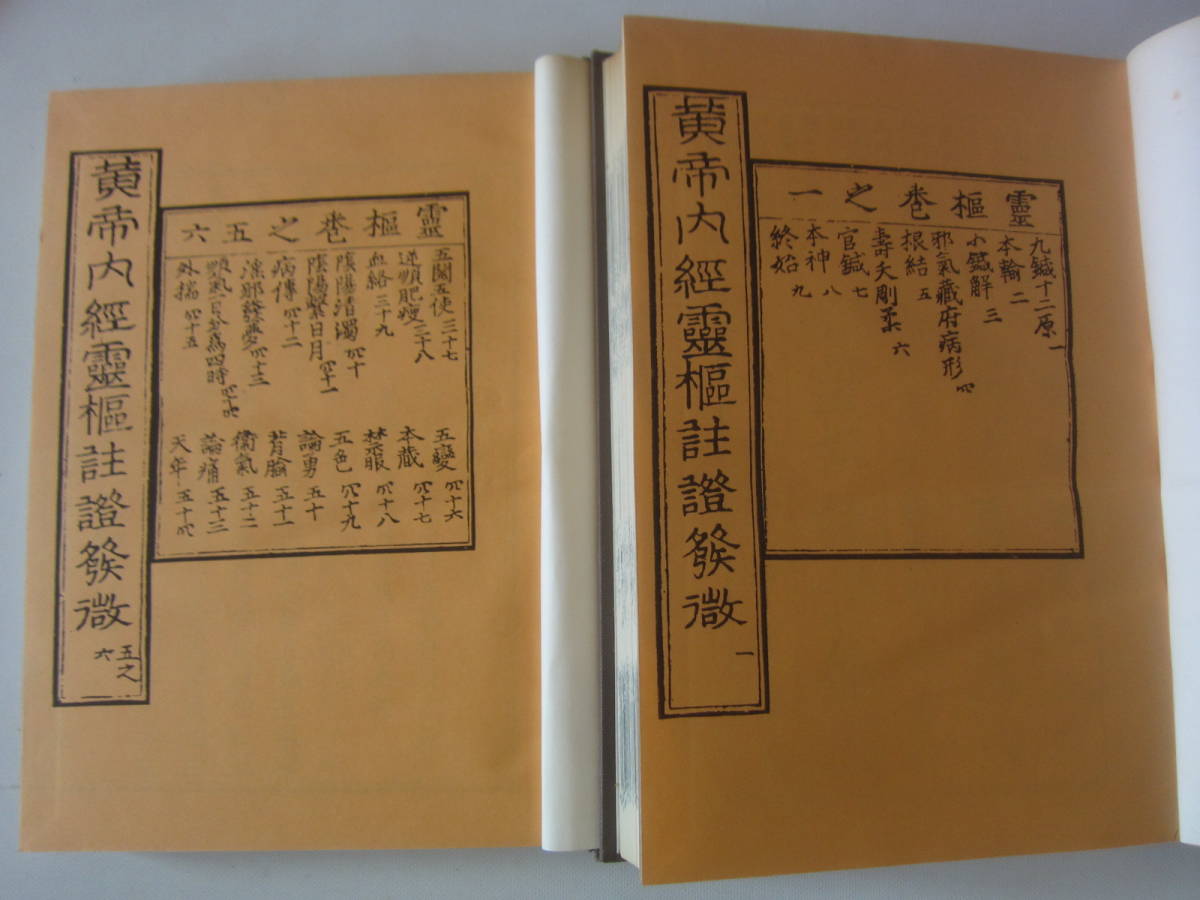 黄帝内經靈樞註證發微 一
靈樞巻之一
九鍼十二原 一
本輸 二
小鍼解 三
邪氣藏府病形 四
根結 五
壽夭剛柔 六
官鍼 七
本神 八
終始 九
黄帝内經靈樞註證發微 五之六
靈樞巻之五六
五閱五使 三十七
逆順肥瘦 三十八
血絡 三十九
陰陽清濁 四十
陰陽繫日月 四十一
病傳 四十二
淫邪發夢 四十三
順氣一日分爲四時 四十四
外揣 四十五
五變 四十六
本藏 四十七
禁服 四十八
五色 四十九
論勇 五十
背腧 五十一
衛氣 五十二
論痛 五十三
天年 五十四